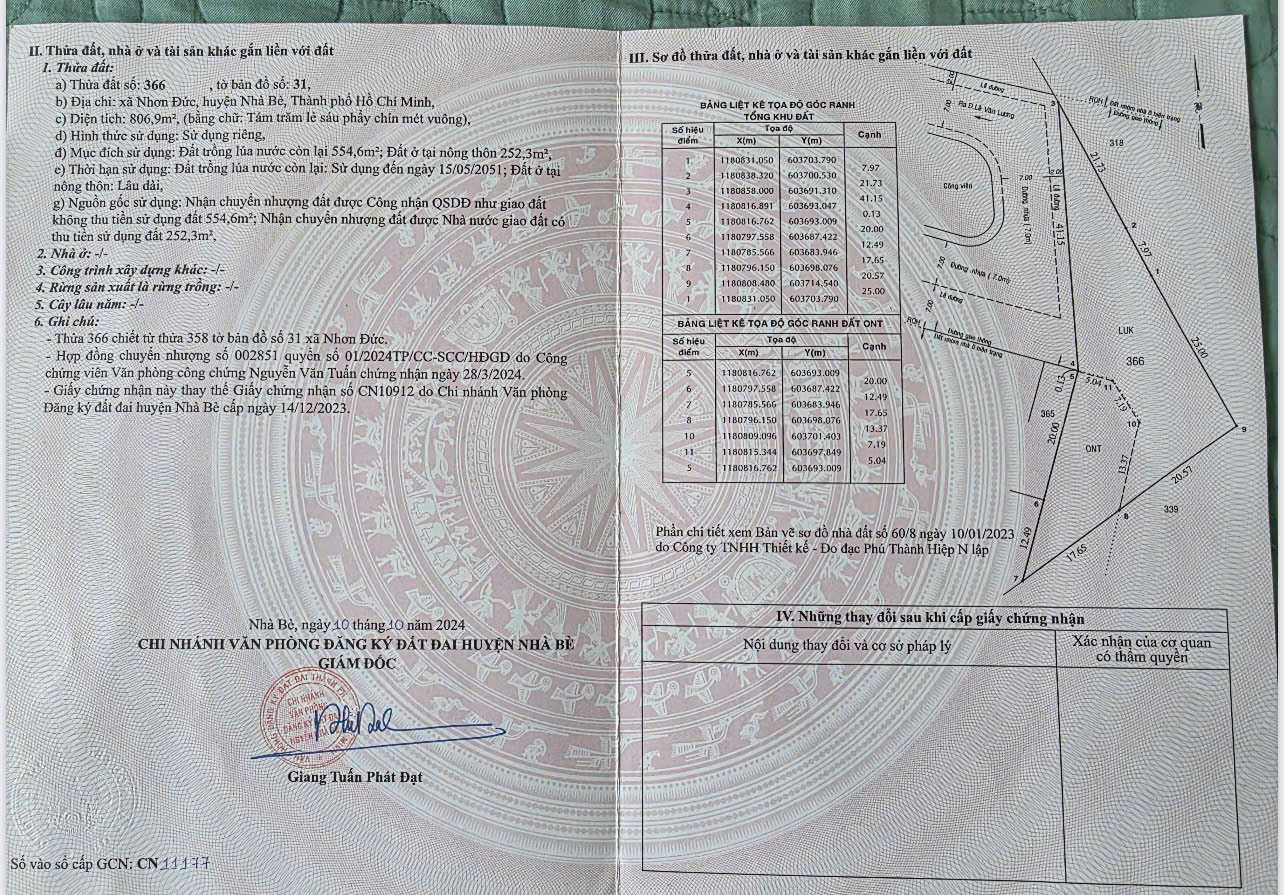 II. Thửa đất, nhà ở và tài sản khác gắn liền với đất
1. Thửa đất:
a) Thửa đất số: 366 , tờ bản đồ số: 31,
b) Địa chỉ: xã Nhơn Đức, huyện Nhà Bè, Thành phố Hồ Chí Minh,
c) Diện tích: 806,9m², (bằng chữ: Tám trăm lẻ sáu phẩy chín mét vuông),
d) Hình thức sử dụng: Sử dụng riêng,
đ) Mục đích sử dụng: Đất trồng lúa nước còn lại 554,6m²; Đất ở tại nông thôn 252,3m²,
e) Thời hạn sử dụng: Đất trồng lúa nước còn lại: Sử dụng đến ngày 15/05/2051; Đất ở tại
nông thôn: Lâu dài,
g) Nguồn gốc sử dụng: Nhận chuyển nhượng đất được Công nhận QSDĐ như giao đất
không thu tiền sử dụng đất 554,6m²; Nhận chuyển nhượng đất được Nhà nước giao đất có
thu tiền sử dụng đất 252,3m²,
2. Nhà ở: -/-
3. Công trình xây dựng khác: -/-
4. Rừng sản xuất là rừng trồng: -/-
5. Cây lâu năm: -/-
6. Ghi chú:
- Thửa 366 chiết từ thửa 358 tờ bản đồ số 31 xã Nhơn Đức.
- Hợp đồng chuyển nhượng số 002851 quyển số 01/2024TP/CC-SCC/HĐGD do Công
chứng viên Văn phòng công chứng Nguyễn Văn Tuấn chứng nhận ngày 28/3/2024.
- Giấy chứng nhận này thay thế Giấy chứng nhận số CN10912 do Chi nhánh Văn phòng
Đăng ký đất đai huyện Nhà Bè cấp ngày 14/12/2023.
Nhà Bè, ngày 10 tháng 10 năm 2024
CHI NHÁNH VĂN PHÒNG ĐĂNG KÝ ĐẤT ĐAI HUYỆN NHÀ BÈ
GIÁM ĐỐC
CHI NHÁNH
VĂN PHÒNG
ĐĂNG KÝ ĐẤT ĐAI
HUYỆN NHÀ BÈ
Giang Tuấn Phát Đạt
Số vào sổ cấp GCN: CN 11177
III. Sơ đồ thửa đất, nhà ở và tài sản khác gắn liền với đất
BẢNG LIỆT KÊ TỌA ĐỘ GÓC RANH
TỔNG KHU ĐẤT
Số hiệu điểm Tọa độ Cạnh
X(m) Y(m)
1 1180831.050 603703.790
7.97
2 1180838.320 603700.530
21.73
3 1180858.000 603691.310
41.15
4 1180816.891 603693.047
0.13
5 1180816.762 603693.009
20.00
6 1180797.558 603687.422
12.49
7 1180785.566 603683.946
17.65
8 1180796.150 603698.076
20.57
9 1180808.480 603714.540
25.00
1 1180831.050 603703.790
BẢNG LIỆT KÊ TỌA ĐỘ GÓC RANH ĐẤT ONT
Số hiệu điểm Tọa độ Cạnh
X(m) Y(m)
5 1180816.762 603693.009
20.00
6 1180797.558 603687.422
12.49
7 1180785.566 603683.946
17.65
8 1180796.150 603698.076
13.37
10 1180809.096 603701.403
7.19
11 1180815.344 603697.849
5.04
5 1180816.762 603693.009
Lề đường
Ra Đ.Lê Văn Lương
7.00
3
RQH
Đất nhóm nhà ở hiện trạng
Đường giao thông
318
21.73
Công viên
7.00
2.00
Đường nhựa (7.0m)
Lề đường
41.15
2
7.97
1
7.00
Đường nhựa (7.0m)
Lề đường
7.00
RQH
Đường giao thông
Đất nhóm nhà ở hiện trạng
LUK
366
25.00
4
5
0.13
5.04
11
7.19
10
365
20.00
9
ONT
13.37
20.57
6
8
339
12.49
17.65
7
Phần chi tiết xem Bản vẽ sơ đồ nhà đất số 60/8 ngày 10/01/2023
do Công ty TNHH Thiết kế - Đo đạc Phú Thành Hiệp N lập
IV. Những thay đổi sau khi cấp giấy chứng nhận
Nội dung thay đổi và cơ sở pháp lý
Xác nhận của cơ quan
có thẩm quyền